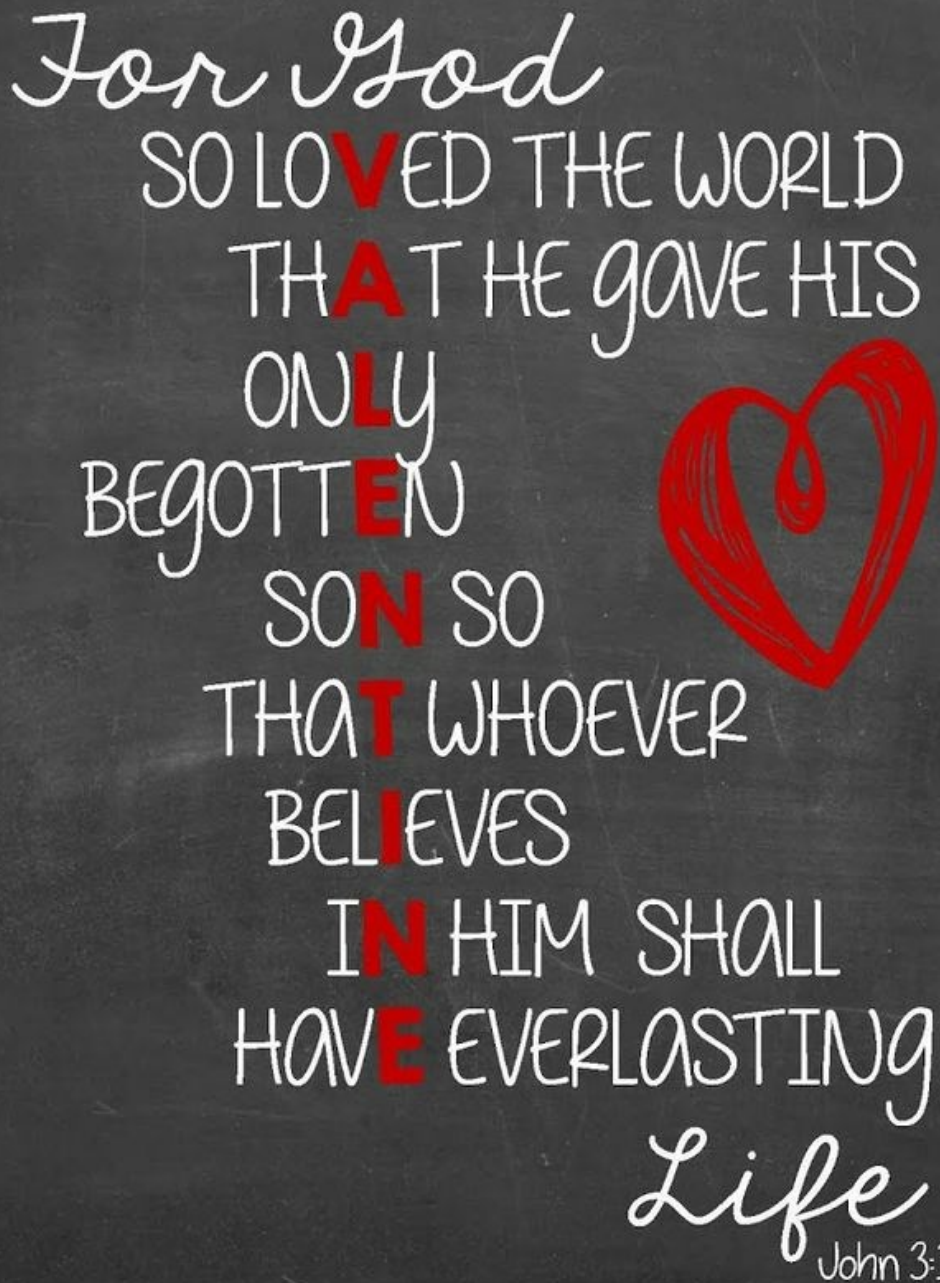 For God
SO LOVED THE WORLD
THAT HE gAVE HIS
ONLY
BEgOTTEN
SON SO
THAT WHOEVER
BELIEVES
IN HIM SHALL
HAVE EVERLASTINg
Life
John 3: